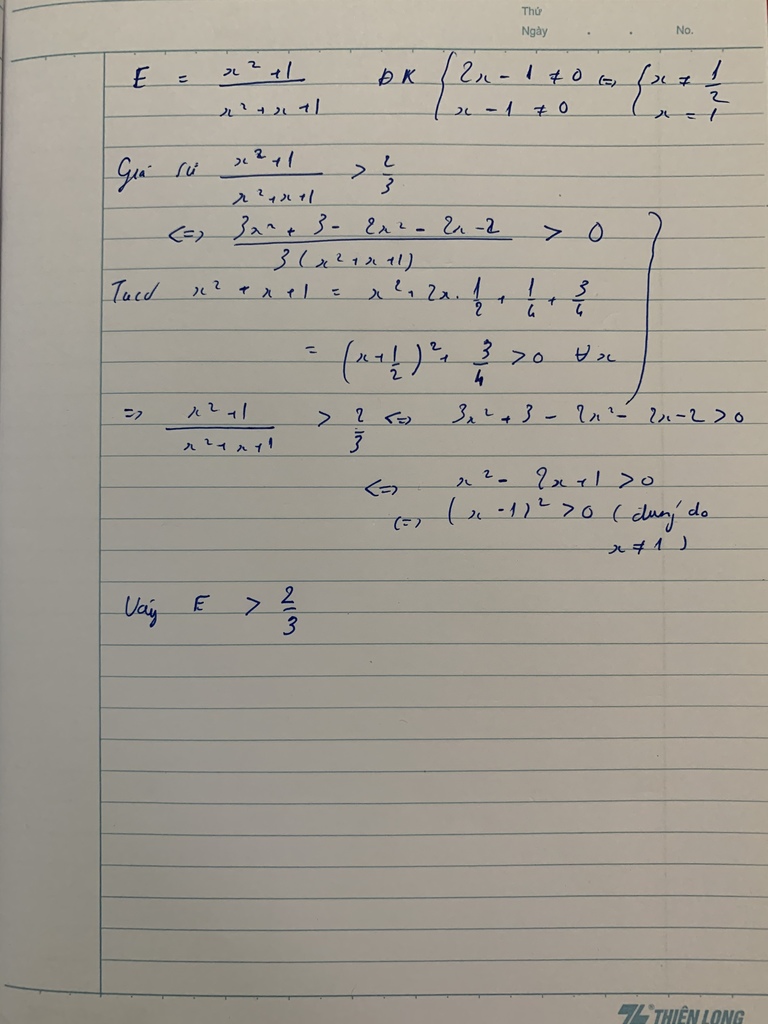 Thứ
Ngày . . No.
E = \frac{x^2+1}{x^2+x+1} ĐK { 2x - 1 ≠ 0 <=> { x ≠ \frac{1}{2}
{ x - 1 ≠ 0 { x = 1
Giả sử \frac{x^2+1}{x^2+x+1} > \frac{2}{3}
<=> \frac{3x^2 + 3 - 2x^2 - 2x - 2}{3(x^2+x+1)} > 0
Ta có x^2 + x + 1 = x^2 + 2x.\frac{1}{2} + \frac{1}{4} + \frac{3}{4}
= (x + \frac{1}{2})^2 + \frac{3}{4} > 0 ∀x
=> \frac{x^2+1}{x^2+x+1} > \frac{2}{3} <=> 3x^2 + 3 - 2x^2 - 2x - 2 > 0
<=> x^2 - 2x + 1 > 0
<=> (x - 1)^2 > 0 (đúng do
x ≠ 1)
Vậy E > \frac{2}{3}
THIÊN LONG